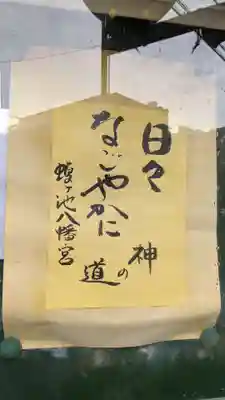 日々
なごやかに
神の道
蟶ヶ池八幡宮